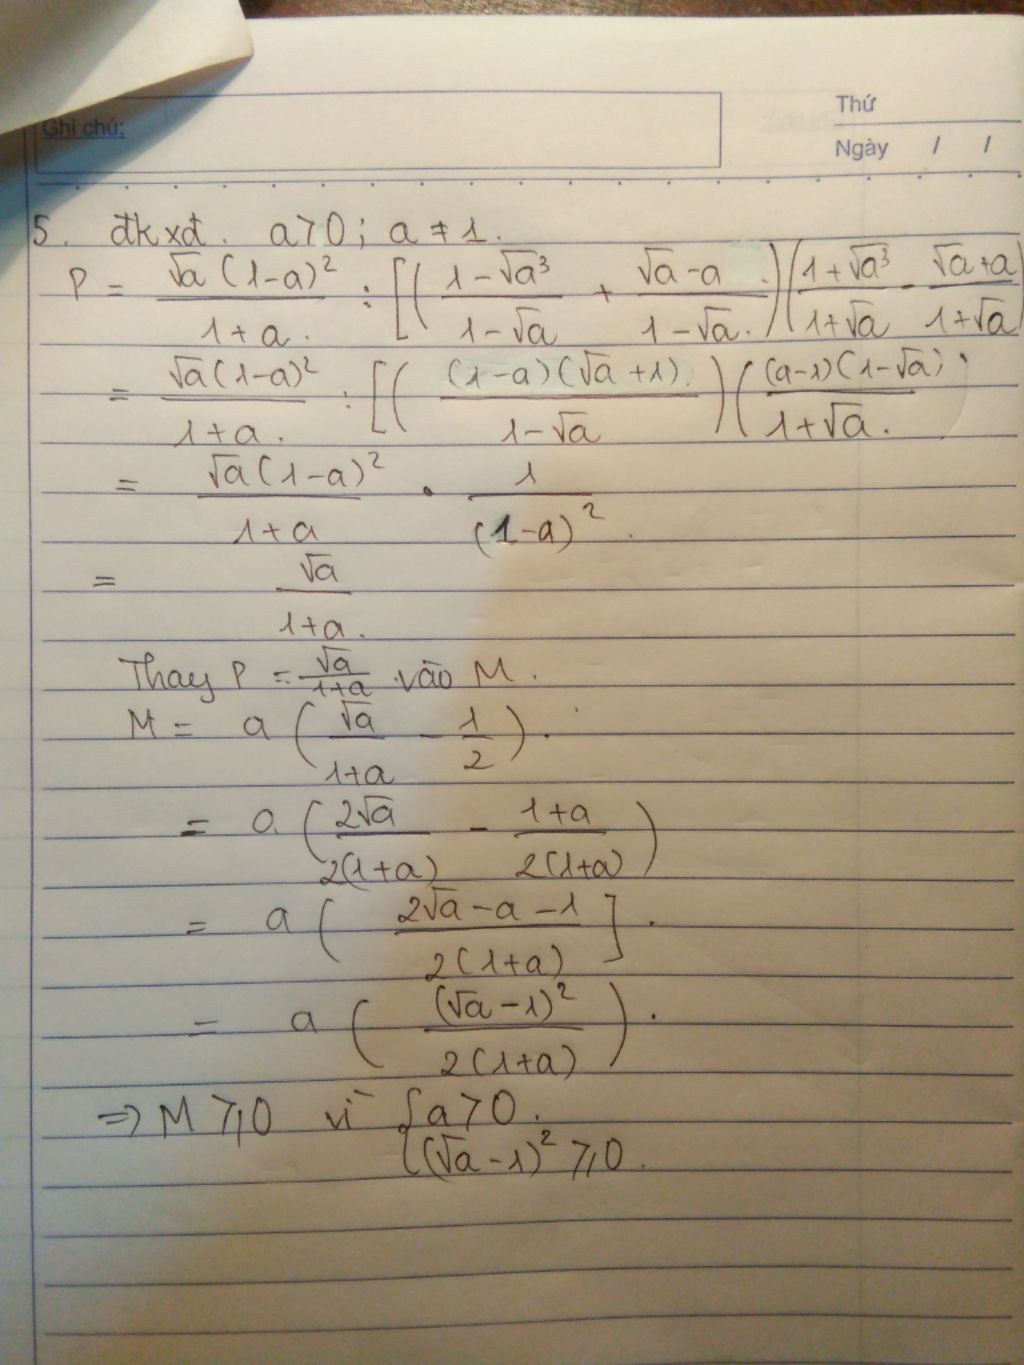 Ghi chú:
Thứ
Ngày / /
5. đkxđ. a>0; a ≠ 1.
P = √a(1-a)²/1+a. : [(1-√a³/1-√a + √a-a/1-√a.)(1+√a³/1+√a - √a+a/1+√a)
= √a(1-a)²/1+a. : [((1-a)(√a+1)./1-√a)((a-1)(1-√a)/1+√a.
= √a(1-a)²/1+a . 1/(1-a)².
= √a/1+a.
Thay P = √a/1+a vào M.
M = a(√a/1+a - 1/2).
= a(2√a/2(1+a) - 1+a/2(1+a))
= a(2√a-a-1/2(1+a)].
= a((√a-1)²/2(1+a)).
=> M ≥ 0 vì {a>0.
{(√a-1)² ≥ 0.